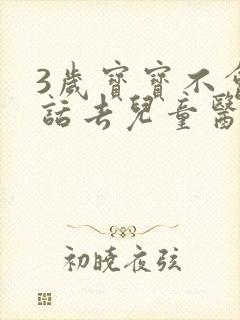 3歲寶寶不會
話去兒童醫
初曉夜弦